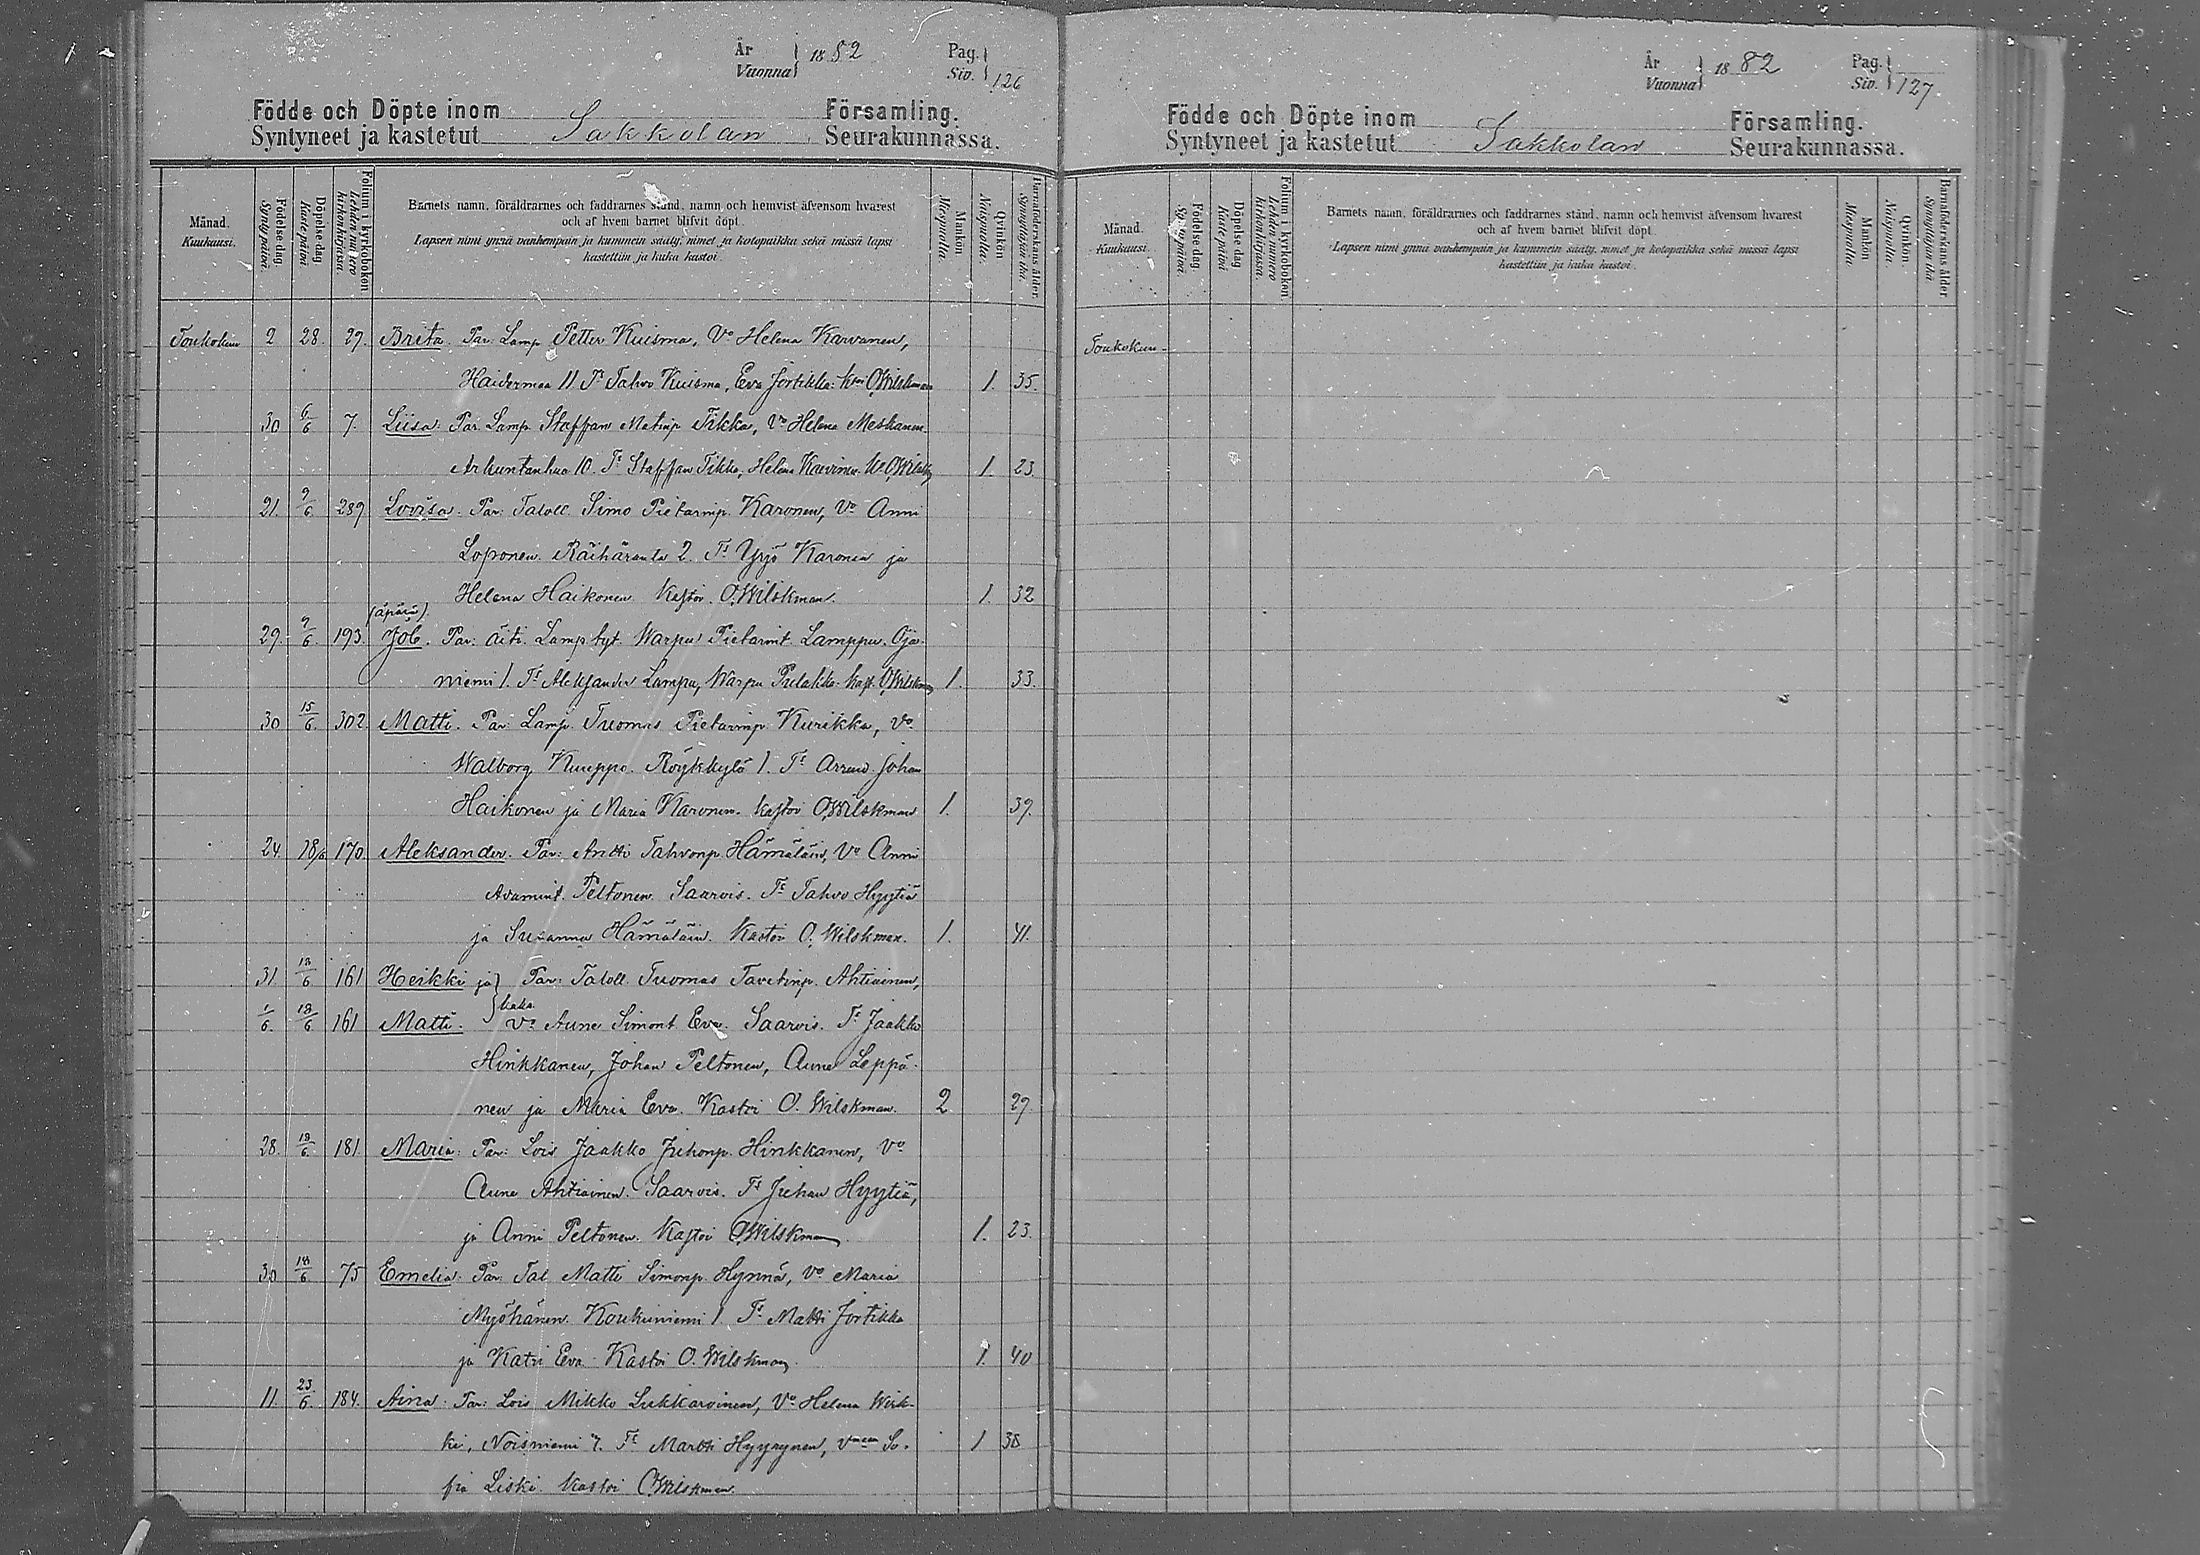 År
Vuonna 1882
Pag.
Siv. 126
Födde och Döpte inom Församling.
Syntyneet ja kastetut Sakkolan Seurakunnassa.
Månad.
Kuukausi.
Födelse dag
Synty päivä.
Döpelse dag
Kaste päivä
Folium i kyrkoboken
Lehden numero kirkonkirjassa.
Barnets namn, föräldrarnes och faddrarnes stånd, namn och hemvist äfvensom hvarest
och af hvem barnet blifvit döpt.
Lapsen nimi ynnä vanhempain ja kummein sääty, nimet ja kotopaikka sekä missä lapsi
kastettiin ja kuka kastoi.
Mankön
Miespuolia.
Qvinkön
Naispuolia.
Barnaföderskans ålder.
Synnyttäjän ikä
Toukokuu 2 28. 29. Brita. Par. Lamp. Petter Kuisma, Vo Helena Karvanen,
Haidermaa 11 Tt Tahvo Kuisma, Eva Jortikka: O Wilskman 1. 35.
30 6/6 7. Liisa: Par. Lamp. Staffan Matinp. Tikka, Vo Helena Meskanen
Arkuntanhua 10. Tt Staffan Tikka, Helena 1. 23.
21. 9/6 289 Lovisa. Par: Taloll. Simo Pietarinp. Karonen, Vo Anni
Loponen. Räihäranta 2. Tt Yrjö Karonen ja
Helena Haikonen Kastoi. O. Wilskman. 1. 32
(äpärä).
29. 9/6 193. Job. Par. äiti. Lamp. tyt. Warpu Pietarint. Lamppu. Oja-
niemi 1. Tt Aleksander Lampu, Warpu Pulakka. Kast. O. Wilskman 1. 33.
30 15/6 302 Matti. Par: Lamp. Tuomas Pietarinp. Kurikka, Vo
Walborg Kuuppo. Röykkylä 1. Tt Arrend. Johan
Haikonen ja Maria Karonen. Kastoi O. Wilskman 1. 39.
24. 18/6 170 Aleksander. Par: Antti Tahvonp. Hämäläin, Vo Anni
Adamint. Peltonen Saarois. Tt Tahvo Hyytiä
ja Susanna Hämäläin. Kastoi O. Wilskman. 1. 41.
31 18/6 161 Heikki ja Par: Taloll Tuomas Tavetinp. Ahtiainen,
kaks.
1/6. 18/6 161 Matti. Vo Aune Simont Eva. Saarois. Tt Jaakko
Hinkkanen, Johan Peltonen, Aune Leppä-
nen ja Maria Eva. Kastoi O. Wilskman. 2 29.
28. 18/6. 181. Maria: Par: Lois Jaakko Juhonp. Hinkkanen, Vo
Aune Ahtiainen. Saarois. Tt Juhan Hyytiä,
ja Anni Peltonen. Kastoi O. Wilskman. 1. 23.
30 18/6 75 Emelia: Par: Tal Matti Simonp. Hynnä, Vo Maria
Myöhänen. Koukuniemi 1 Tt Matti Jortikka
ja Katri Eva Kastoi O. Wilskman. 1. 40
11. 23/6. 184. Aina: Par: Lois Mikko Lukkaroinen, Vo Helena Wirk-
ki, Noisniemi 7. Tt Martti Hyyrynen, So-
fia Liski. Kastoi O. Wilskman. 1 38
År
Vuonna 1882
Pag.
Siv. 127
Födde och Döpte inom Församling.
Syntyneet ja kastetut Sakkolan Seurakunnassa.
Månad.
Kuukausi.
Födelse dag
Synty päivä.
Döpelse dag
Kaste päivä
Folium i kyrkoboken
Lehden numero kirkonkirjassa.
Barnets namn, föräldrarnes och faddrarnes stånd, namn och hemvist äfvensom hvarest
och af hvem barnet blifvit döpt.
Lapsen nimi ynnä vanhempain ja kummein sääty, nimet ja kotopaikka sekä missä lapsi
kastettiin ja kuka kastoi.
Mankön
Miespuolia.
Qvinkön.
Naispuolia.
Barnaföderskans ålder
Synnyttäjän ikä
Toukokuu